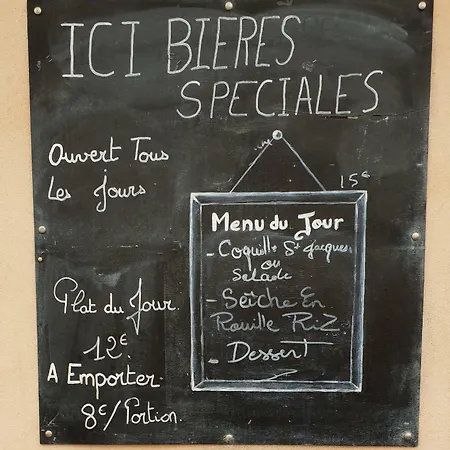 ICI BIERES
SPECIALES
Ouvert Tous
Les Jours
15€
Menu du Jour
- Coquille St Jacques
ou
Salade
- Seiche En
Rouille Riz
- Dessert
Plat du Jour.
12€
A Emporter
8€/Portion.